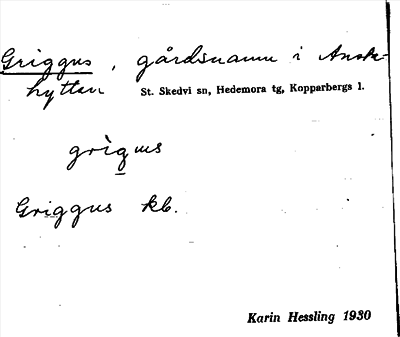 Griggus, gårdsnamn i Ansk-
hyttan St. Skedvi sn, Hedemora tg, Kopparbergs l.
grìgus
Griggus kb.
Karin Hessling 1930